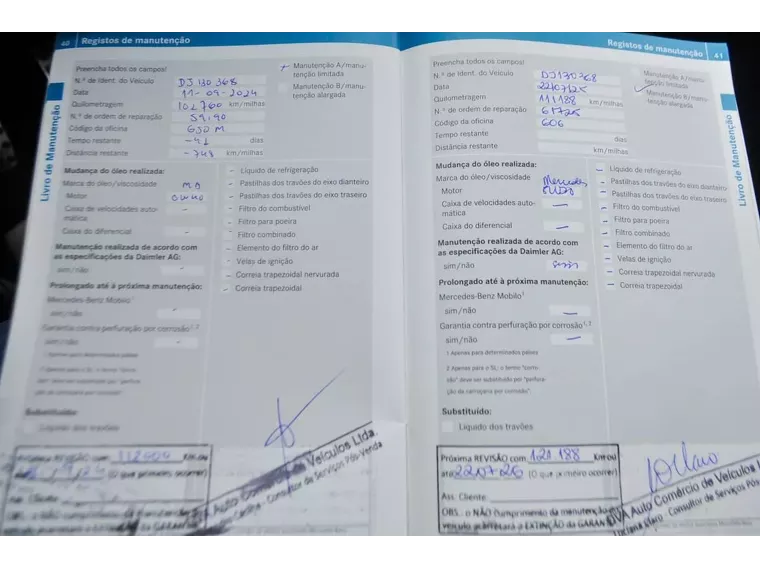 40 Registos de manutenção
Preencha todos os campos!
N.º de Ident. do Veículo DJ130368
Data 11-09-2024
Quilometragem 102760 km/milhas
N.º de ordem de reparação 59190
Código da oficina 630 M
Tempo restante -41 dias
Distância restante -748 km/milhas
Manutenção A/manutenção limitada
Manutenção B/manutenção alargada
Livro de Manutenção
Mudança do óleo realizada:
Marca do óleo/viscosidade
Motor
Caixa de velocidades automática -
Caixa do diferencial -
Manutenção realizada de acordo com
as especificações da Daimler AG:
sim/não -
Prolongado até à próxima manutenção:
Mercedes-Benz Mobilo¹
sim/não -
Garantia contra perfuração por corrosão¹,²
sim/não -
1 Apenas para determinados países
Substituído:
Líquido dos travões
- Líquido de refrigeração
- Pastilhas dos travões do eixo dianteiro
- Pastilhas dos travões do eixo traseiro
- Filtro do combustível
- Filtro para poeira
- Filtro combinado
- Elemento do filtro do ar
- Velas de ignição
- Correia trapezoidal nervurada
- Correia trapezoidal
Próxima REVISÃO com Km ou
(O que primeiro ocorrer)
Ass. Cliente
OBS.: o NÃO cumprimento da manutenção
veículo acarretará a EXTINÇÃO da GARAN
DVA Auto Comércio de Veículos Ltda.
Consultor de Serviços Pós-Venda
Registos de manutenção 41
Preencha todos os campos!
N.º de Ident. do Veículo DJ130368
Data 2207125
Quilometragem 111188 km/milhas
N.º de ordem de reparação 61725
Código da oficina 606
Tempo restante dias
Distância restante km/milhas
Manutenção A/manutenção limitada
Manutenção B/manutenção alargada
Livro de Manutenção
Mudança do óleo realizada:
Marca do óleo/viscosidade Mercedes
Motor
Caixa de velocidades automática -
Caixa do diferencial -
Manutenção realizada de acordo com
as especificações da Daimler AG:
sim/não
Prolongado até à próxima manutenção:
Mercedes-Benz Mobilo¹
sim/não -
Garantia contra perfuração por corrosão¹,²
sim/não -
1 Apenas para determinados países
2 Apenas para o SL; o termo "corrosão" deve ser substituído por "perfuração da carroçaria por corrosão".
Substituído:
Líquido dos travões
- Líquido de refrigeração
- Pastilhas dos travões do eixo dianteiro
- Pastilhas dos travões do eixo traseiro
- Filtro do combustível
- Filtro para poeira
- Filtro combinado
- Elemento do filtro do ar
- Velas de ignição
- Correia trapezoidal nervurada
- Correia trapezoidal
Próxima REVISÃO com 121.188 Km ou
até 220726 (O que primeiro ocorrer)
Ass. Cliente
OBS.: o NÃO cumprimento da manutenção
veículo acarretará a EXTINÇÃO da GARAN
DVA Auto Comércio de Veículos L
Luciana Claro - Consultor de Serviços Pós